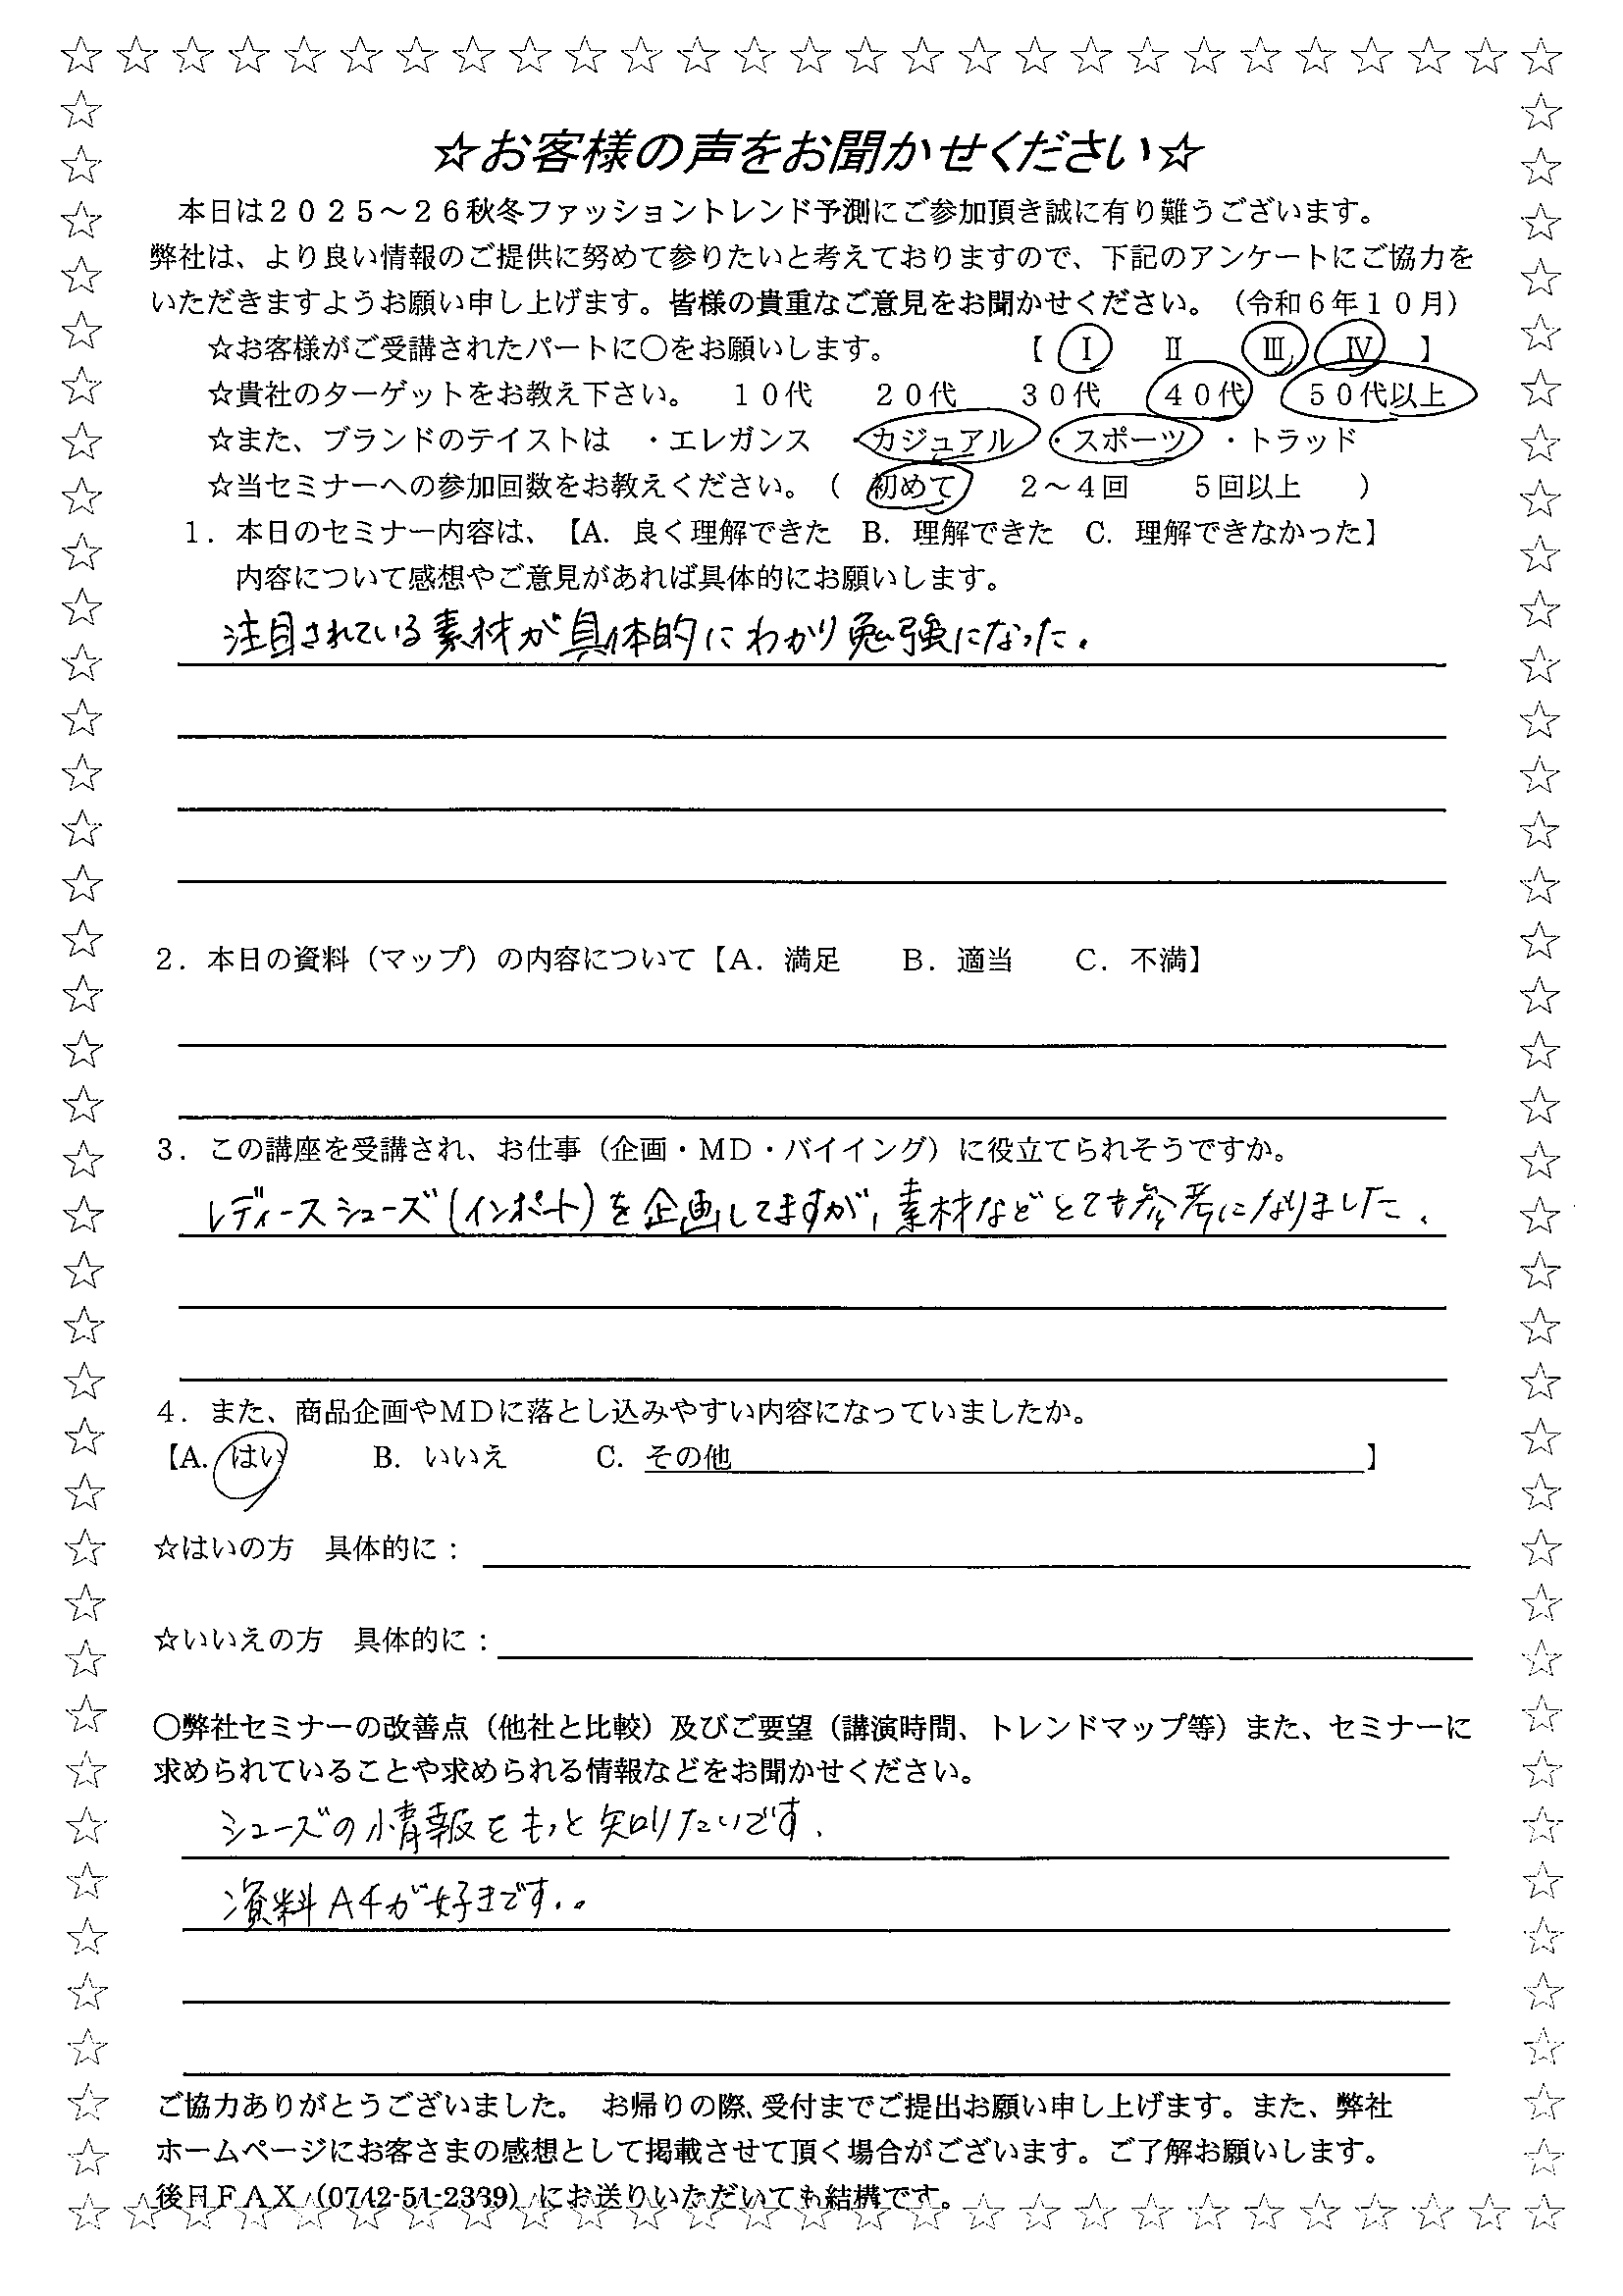 ☆お客様の声をお聞かせください☆
本日は２０２５～２６秋冬ファッショントレンド予測にご参加頂き誠に有り難うございます。
弊社は、より良い情報のご提供に努めて参りたいと考えておりますので、下記のアンケートにご協力を
いただきますようお願い申し上げます。皆様の貴重なご意見をお聞かせください。（令和６年１０月）
☆お客様がご受講されたパートに〇をお願いします。　【　Ⅰ　Ⅱ　Ⅲ　Ⅳ　】
☆貴社のターゲットをお教え下さい。　１０代　２０代　３０代　４０代　５０代以上
☆また、ブランドのテイストは　・エレガンス　・カジュアル　・スポーツ　・トラッド
☆当セミナーへの参加回数をお教えください。（　初めて　２～４回　５回以上　）
１．本日のセミナー内容は、【A．良く理解できた　B．理解できた　C．理解できなかった】
内容について感想やご意見があれば具体的にお願いします。
注目されている素材が具体的にわかり勉強になった.
２．本日の資料（マップ）の内容について【Ａ．満足　Ｂ．適当　Ｃ．不満】
３．この講座を受講され、お仕事（企画・ＭＤ・バイイング）に役立てられそうですか。
レディースシューズ(インポート)を企画してますが、素材などとても参考になりました.
４．また、商品企画やＭＤに落とし込みやすい内容になっていましたか。
【A．はい　B．いいえ　C．その他　】
☆はいの方　具体的に：
☆いいえの方　具体的に：
〇弊社セミナーの改善点（他社と比較）及びご要望（講演時間、トレンドマップ等）また、セミナーに
求められていることや求められる情報などをお聞かせください。
シューズの情報をもっと知りたいです.
資料A4が好きです..
ご協力ありがとうございました。　お帰りの際、受付までご提出お願い申し上げます。また、弊社
ホームページにお客さまの感想として掲載させて頂く場合がございます。ご了解お願いします。
後日ＦＡＸ（0742-51-2339）にお送りいただいても結構です。